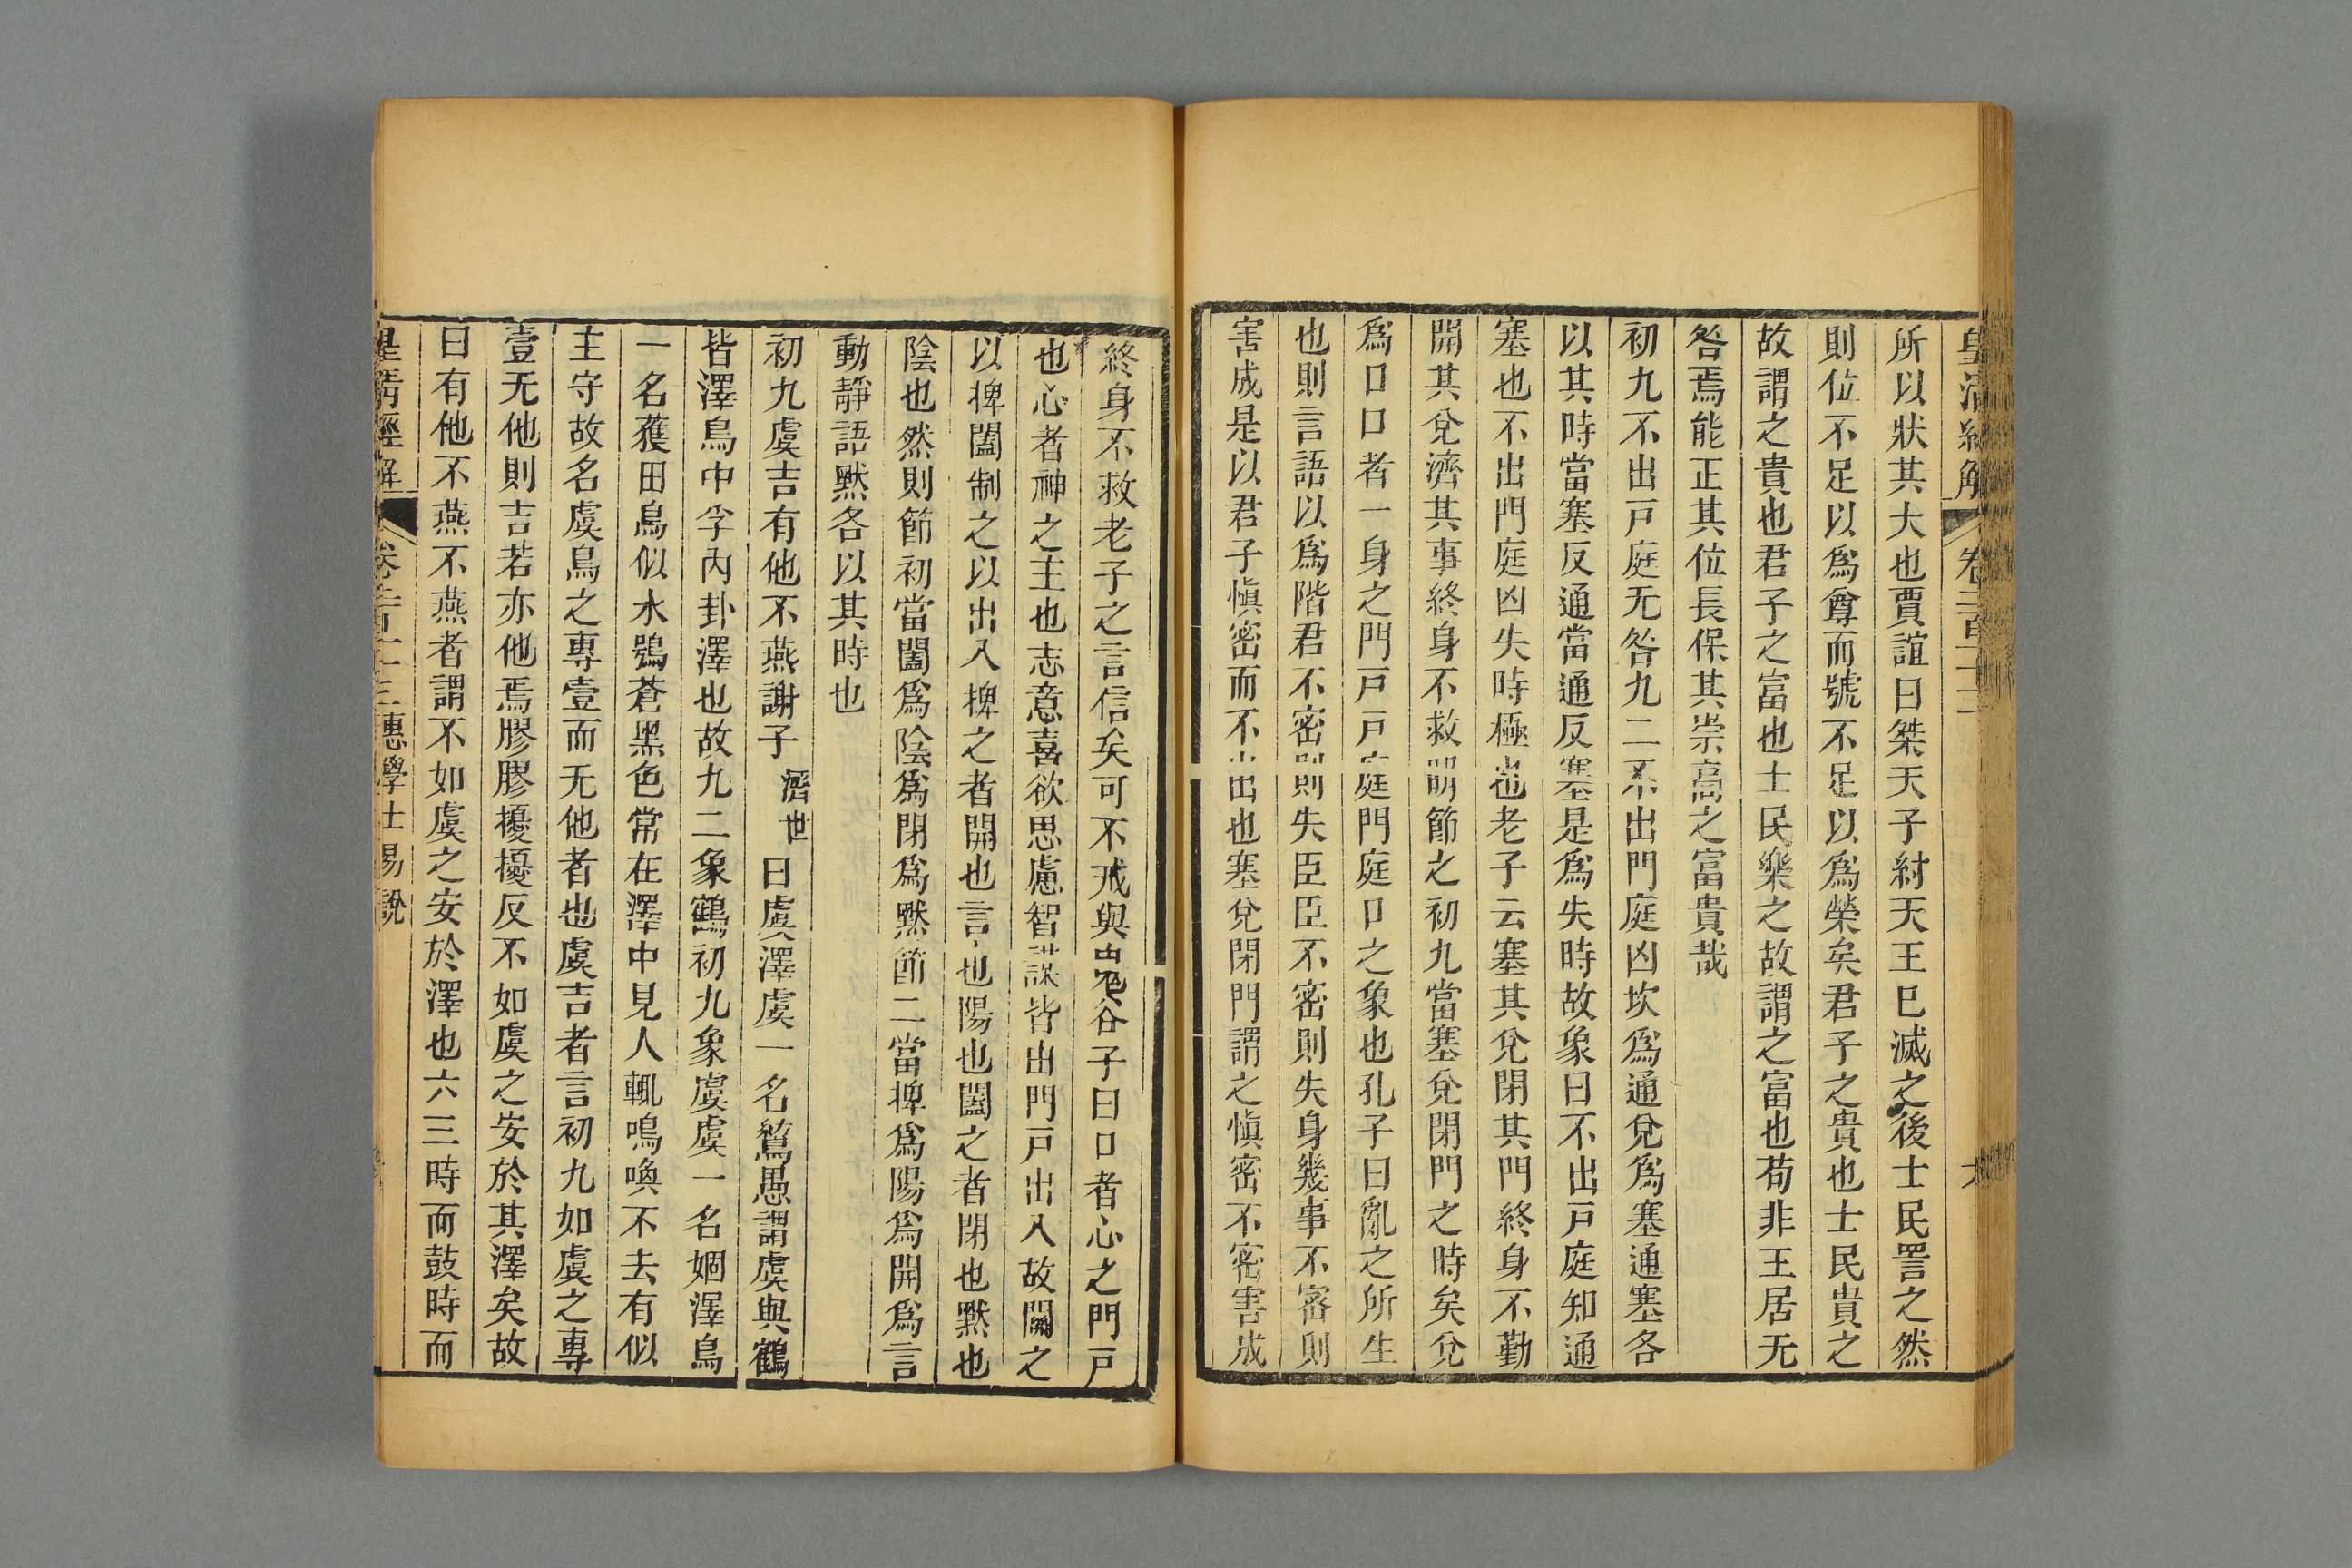 皇清經解 卷二百十三 六
所以狀其大也賈誼曰桀天子紂天王巳滅之後士民詈之然
則位不足以爲尊而號不足以爲榮矣君子之貴也士民貴之
故謂之貴也君子之富也士民樂之故謂之富也苟非王居无
咎焉能正其位長保其崇高之富貴哉
初九不出戸庭无咎九二不出門庭凶坎爲通兌爲塞通塞各
以其時當塞反通當通反塞是爲失時故象曰不出戸庭知通
塞也不出門庭凶失時極也老子云塞其兌閉其門終身不勤
開其兌濟其事終身不救明節之初九當塞兌閉門之時矣兌
爲口口者一身之門戸戸庭門庭口之象也孔子曰亂之所生
也則言語以爲階君不密則失臣臣不密則失身幾事不密則
害成是以君子愼密而不出也塞兌閉門謂之愼密不密害成
終身不救老子之言信矣可不戒與鬼谷子曰口者心之門戸
也心者神之主也志意喜欲思慮智謀皆出門戸出入故關之
以捭闔制之以出入捭之者開也言也陽也闔之者閉也默也
陰也然則節初當闔爲陰爲閉爲默節二當捭爲陽爲開爲言
動靜語默各以其時也
初九虞吉有他不燕謝子濟世曰虞澤虞一名鴛愚謂虞與鶴
皆澤鳥中孚內卦澤也故九二象鶴初九象虞虞一名婟澤鳥
一名蒦田鳥似水鴞蒼黑色常在澤中見人輒鳴喚不去有似
主守故名虞鳥之專壹而无他者也虞吉者言初九如虞之專
壹无他則吉若亦他焉膠膠擾擾反不如虞之安於其澤矣故
曰有他不燕不燕者謂不如虞之安於澤也六三時而鼓時而
皇清經解 卷二百十三惠學士易說